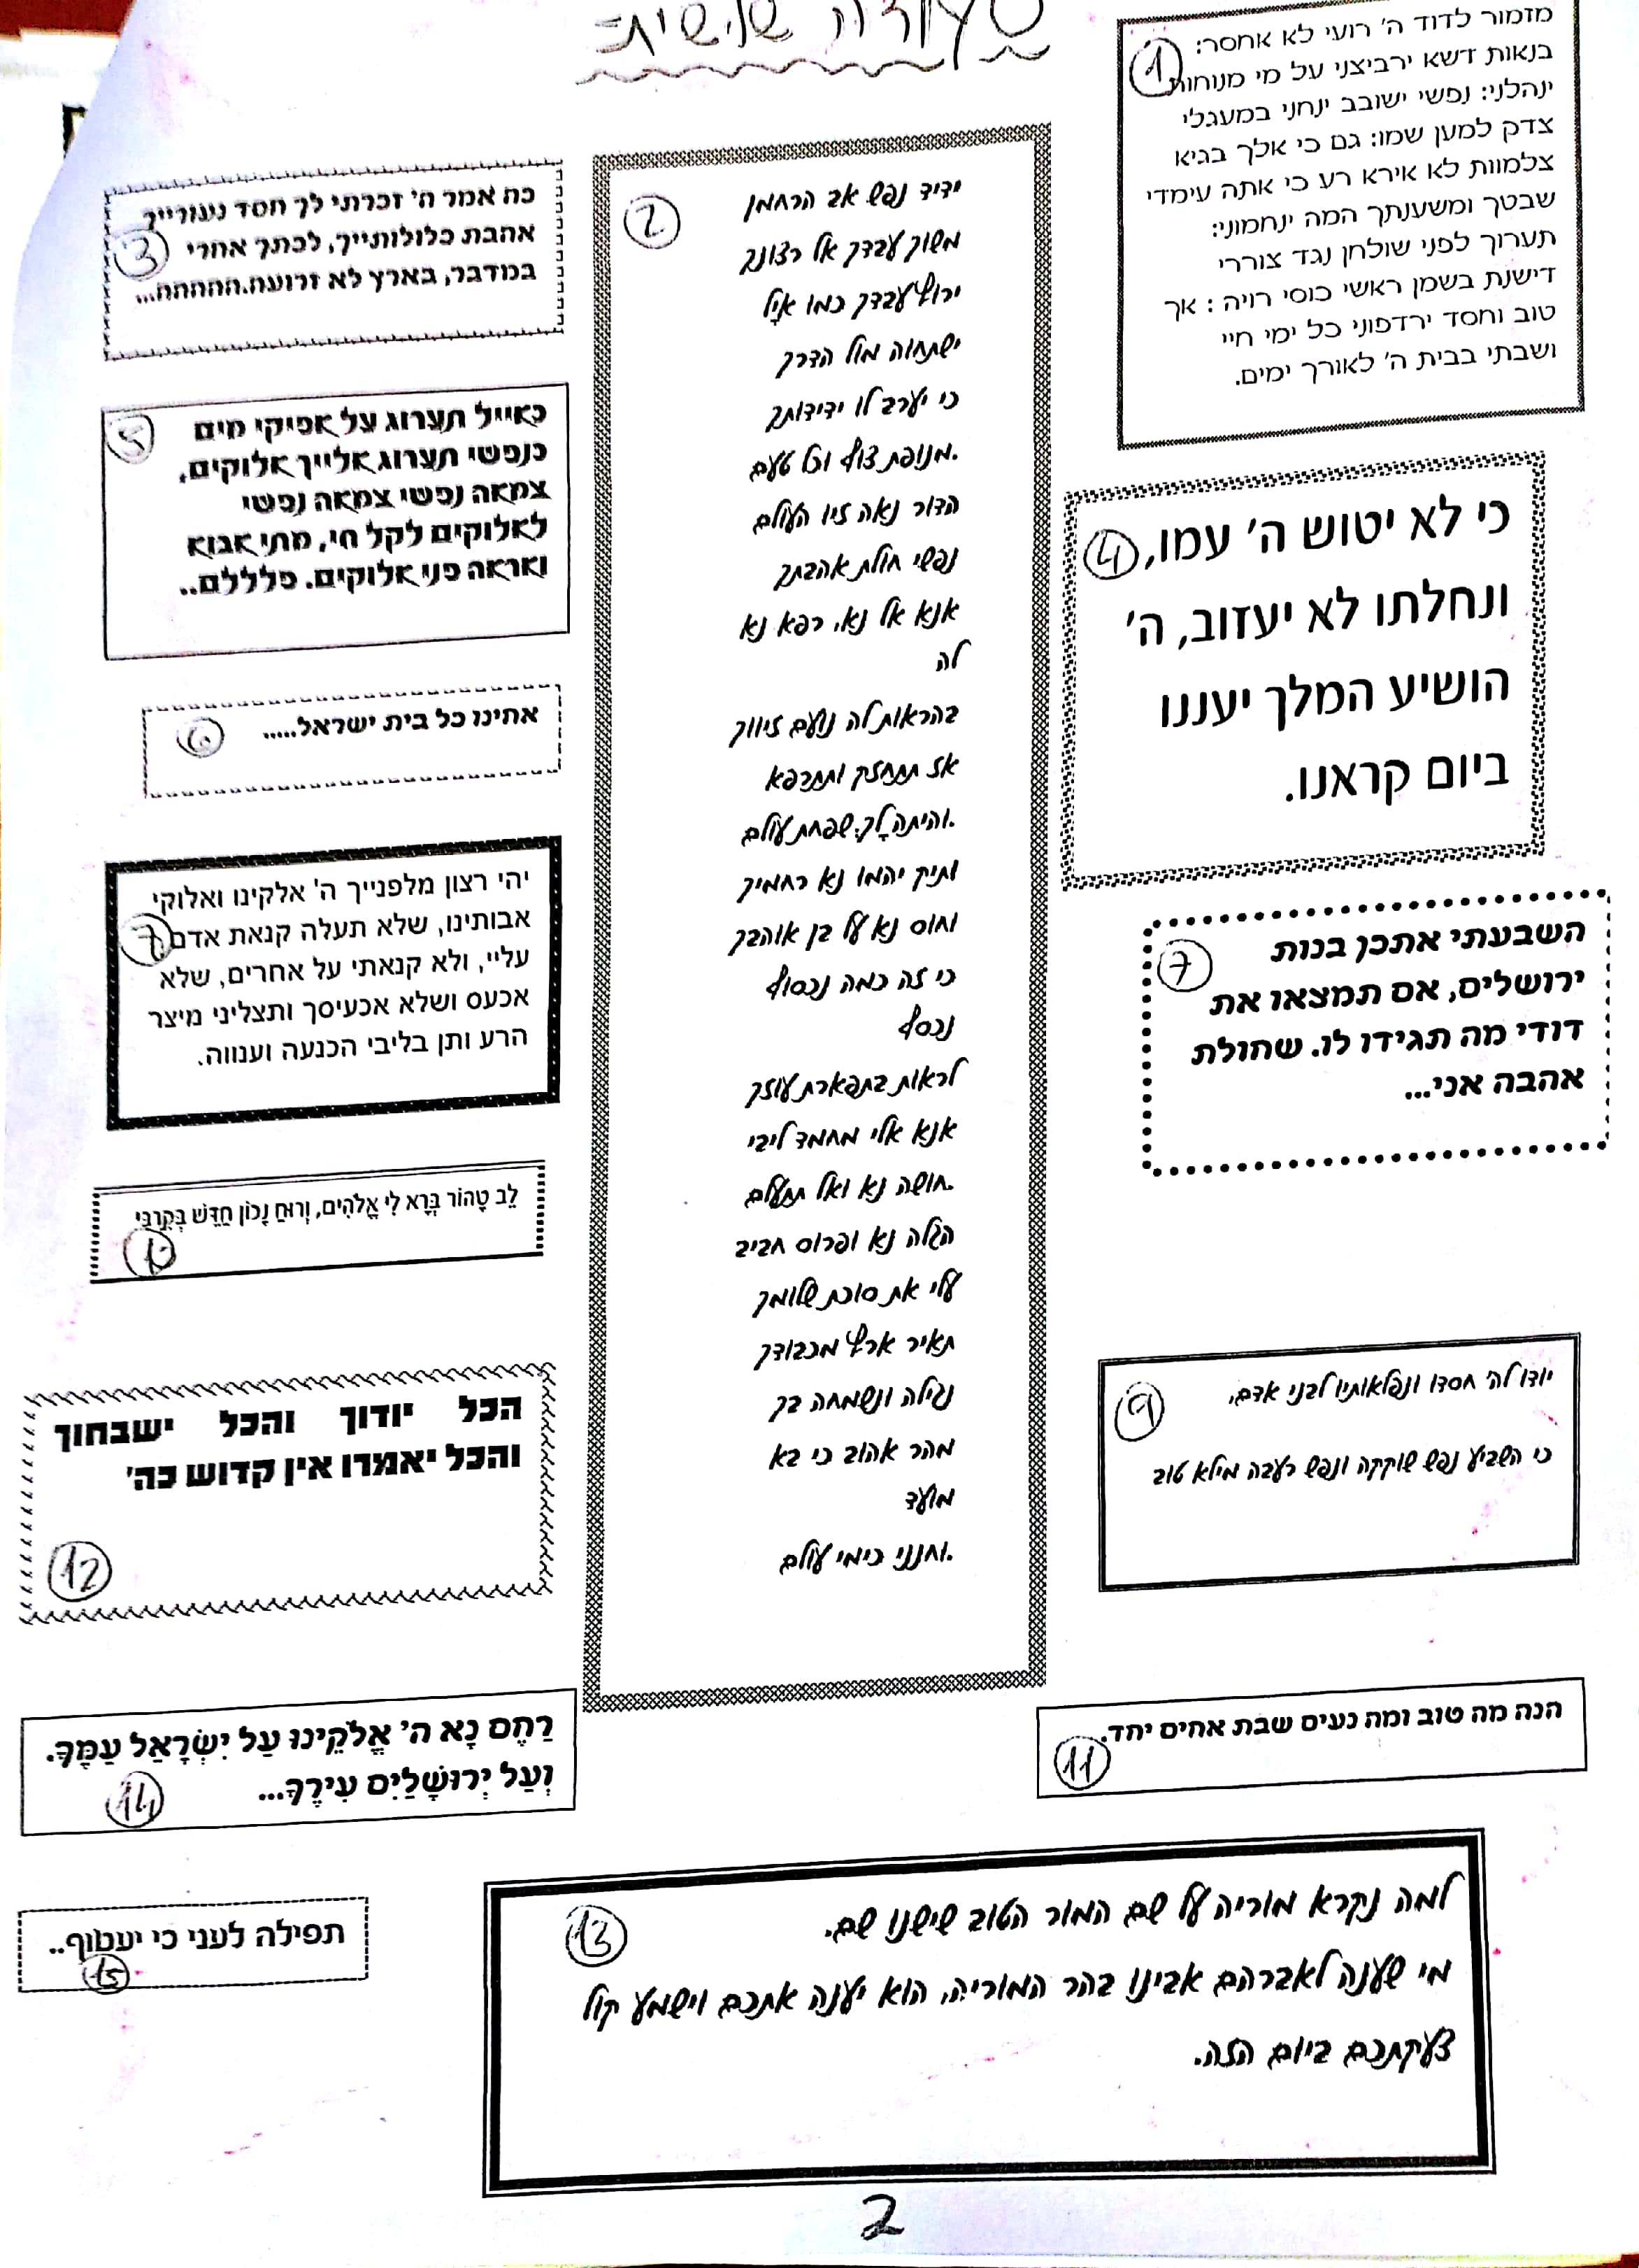 סעודה שלישית:
1
מזמור לדוד ה' רועי לא אחסר:
בנאות דשא ירביצני על מי מנוחות
ינהלני: נפשי ישובב ינחני במעגלי
צדק למען שמו: גם כי אלך בגיא
צלמוות לא אירא רע כי אתה עימדי
שבטך ומשענתך המה ינחמוני:
תערוך לפני שולחן נגד צוררי
דישנת בשמן ראשי כוסי רויה : אך
טוב וחסד ירדפוני כל ימי חיי
ושבתי בבית ה' לאורך ימים.
2
ידיד נפש אב הרחמן
משוך עבדך אל רצונך
ירוץ עבדך כמו איָל
ישתחוה מול הדרך
כי יערב לו ידידותך
מנופת צוף וכל טעם.
הדור נאה זיו העולם
נפשי חולת אהבתך
אנא אל נא, רפא נא
לה
בהראות לה נועם זיווך
אז תתחזק ותתרפא
והיתה לָך שפחת עולם.
ותיק יהמו נא רחמיך
וחוס נא על בן אוהבך
כי זה כמה נכסוף
נכסף
לראות בתפארת עוזך
אנא אלי מחמד ליבי
חושה נא ואל תתעלם.
הגלה נא ופרוס חביב
עלי את סוכת שלומך
תאיר ארץ מכבודך
נגילה ונשמחה בך
מהר אהוב כי בא
מועד
וחנני כימי עולם.
3
כה אמר ה' זכרתי לך חסד נעורייך
אהבת כלולותייך, לכתך אחרי
במדבר, בארץ לא זרועה.החחחחח...
4
כי לא יטוש ה' עמו,
ונחלתו לא יעזוב, ה'
הושיע המלך יעננו
ביום קראנו.
5
כאייל תערוג על אפיקי מים
כנפשי תערוג אלייך אלוקים,
צמאה נפשי צמאה נפשי
לאלוקים לקל חי, מתי אבוא
ואראה פני אלוקים. פלללם..
6
אחינו כל בית ישראל.....
7
השבעתי אתכן בנות
ירושלים, אם תמצאו את
דודי מה תגידו לו. שחולת
אהבה אני...
7
יהי רצון מלפנייך ה' אלקינו ואלוקי
אבותינו, שלא תעלה קנאת אדם
עליי, ולא קנאתי על אחרים, שלא
אכעס ושלא אכעיסך ותצליני מיצר
הרע ותן בליבי הכנעה וענווה.
לֵב טָהוֹר בְּרָא לִי אֱלֹהִים, וְרוּחַ נָכוֹן חַדֵּשׁ בְּקִרְבִּי
10
9
יודו לה' חסדו ונפלאותיו לבני אדם,
כי השביע נפש שוקקה ונפש רעבה מילא טוב
הכל יודוך והכל ישבחוך
והכל יאמרו אין קדוש כה'
12
הנה מה טוב ומה נעים שבת אחים יחד.
11
רַחֶם נָא ה' אֱלֹקֵינוּ עַל יִשְׂרָאֵל עַמָּךְ.
וְעַל יְרוּשָׁלַיִם עִירֶךָ...
14
13
למה נקרא מוריה על שם המור הטוב שישנו שם.
מי שענה לאברהם אבינו בהר המוריה, הוא יענה אתכם וישמע קול
צעקתכם ביום הזה.
תפילה לעני כי יעטוף..
15
2